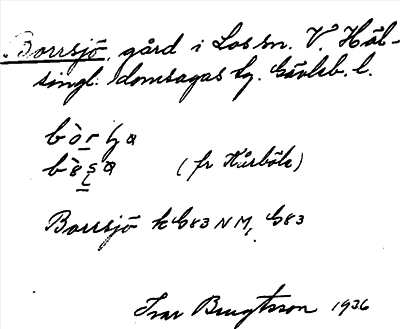 Borrsjö, gård i Los sn. V. Häl-
singl. domsagas tg. Gävleb. l.
bòrʂa
bèʂa (fr Kårböle)
Borrsjö k G83 NM, G83
Ivar Bengtsson 1926